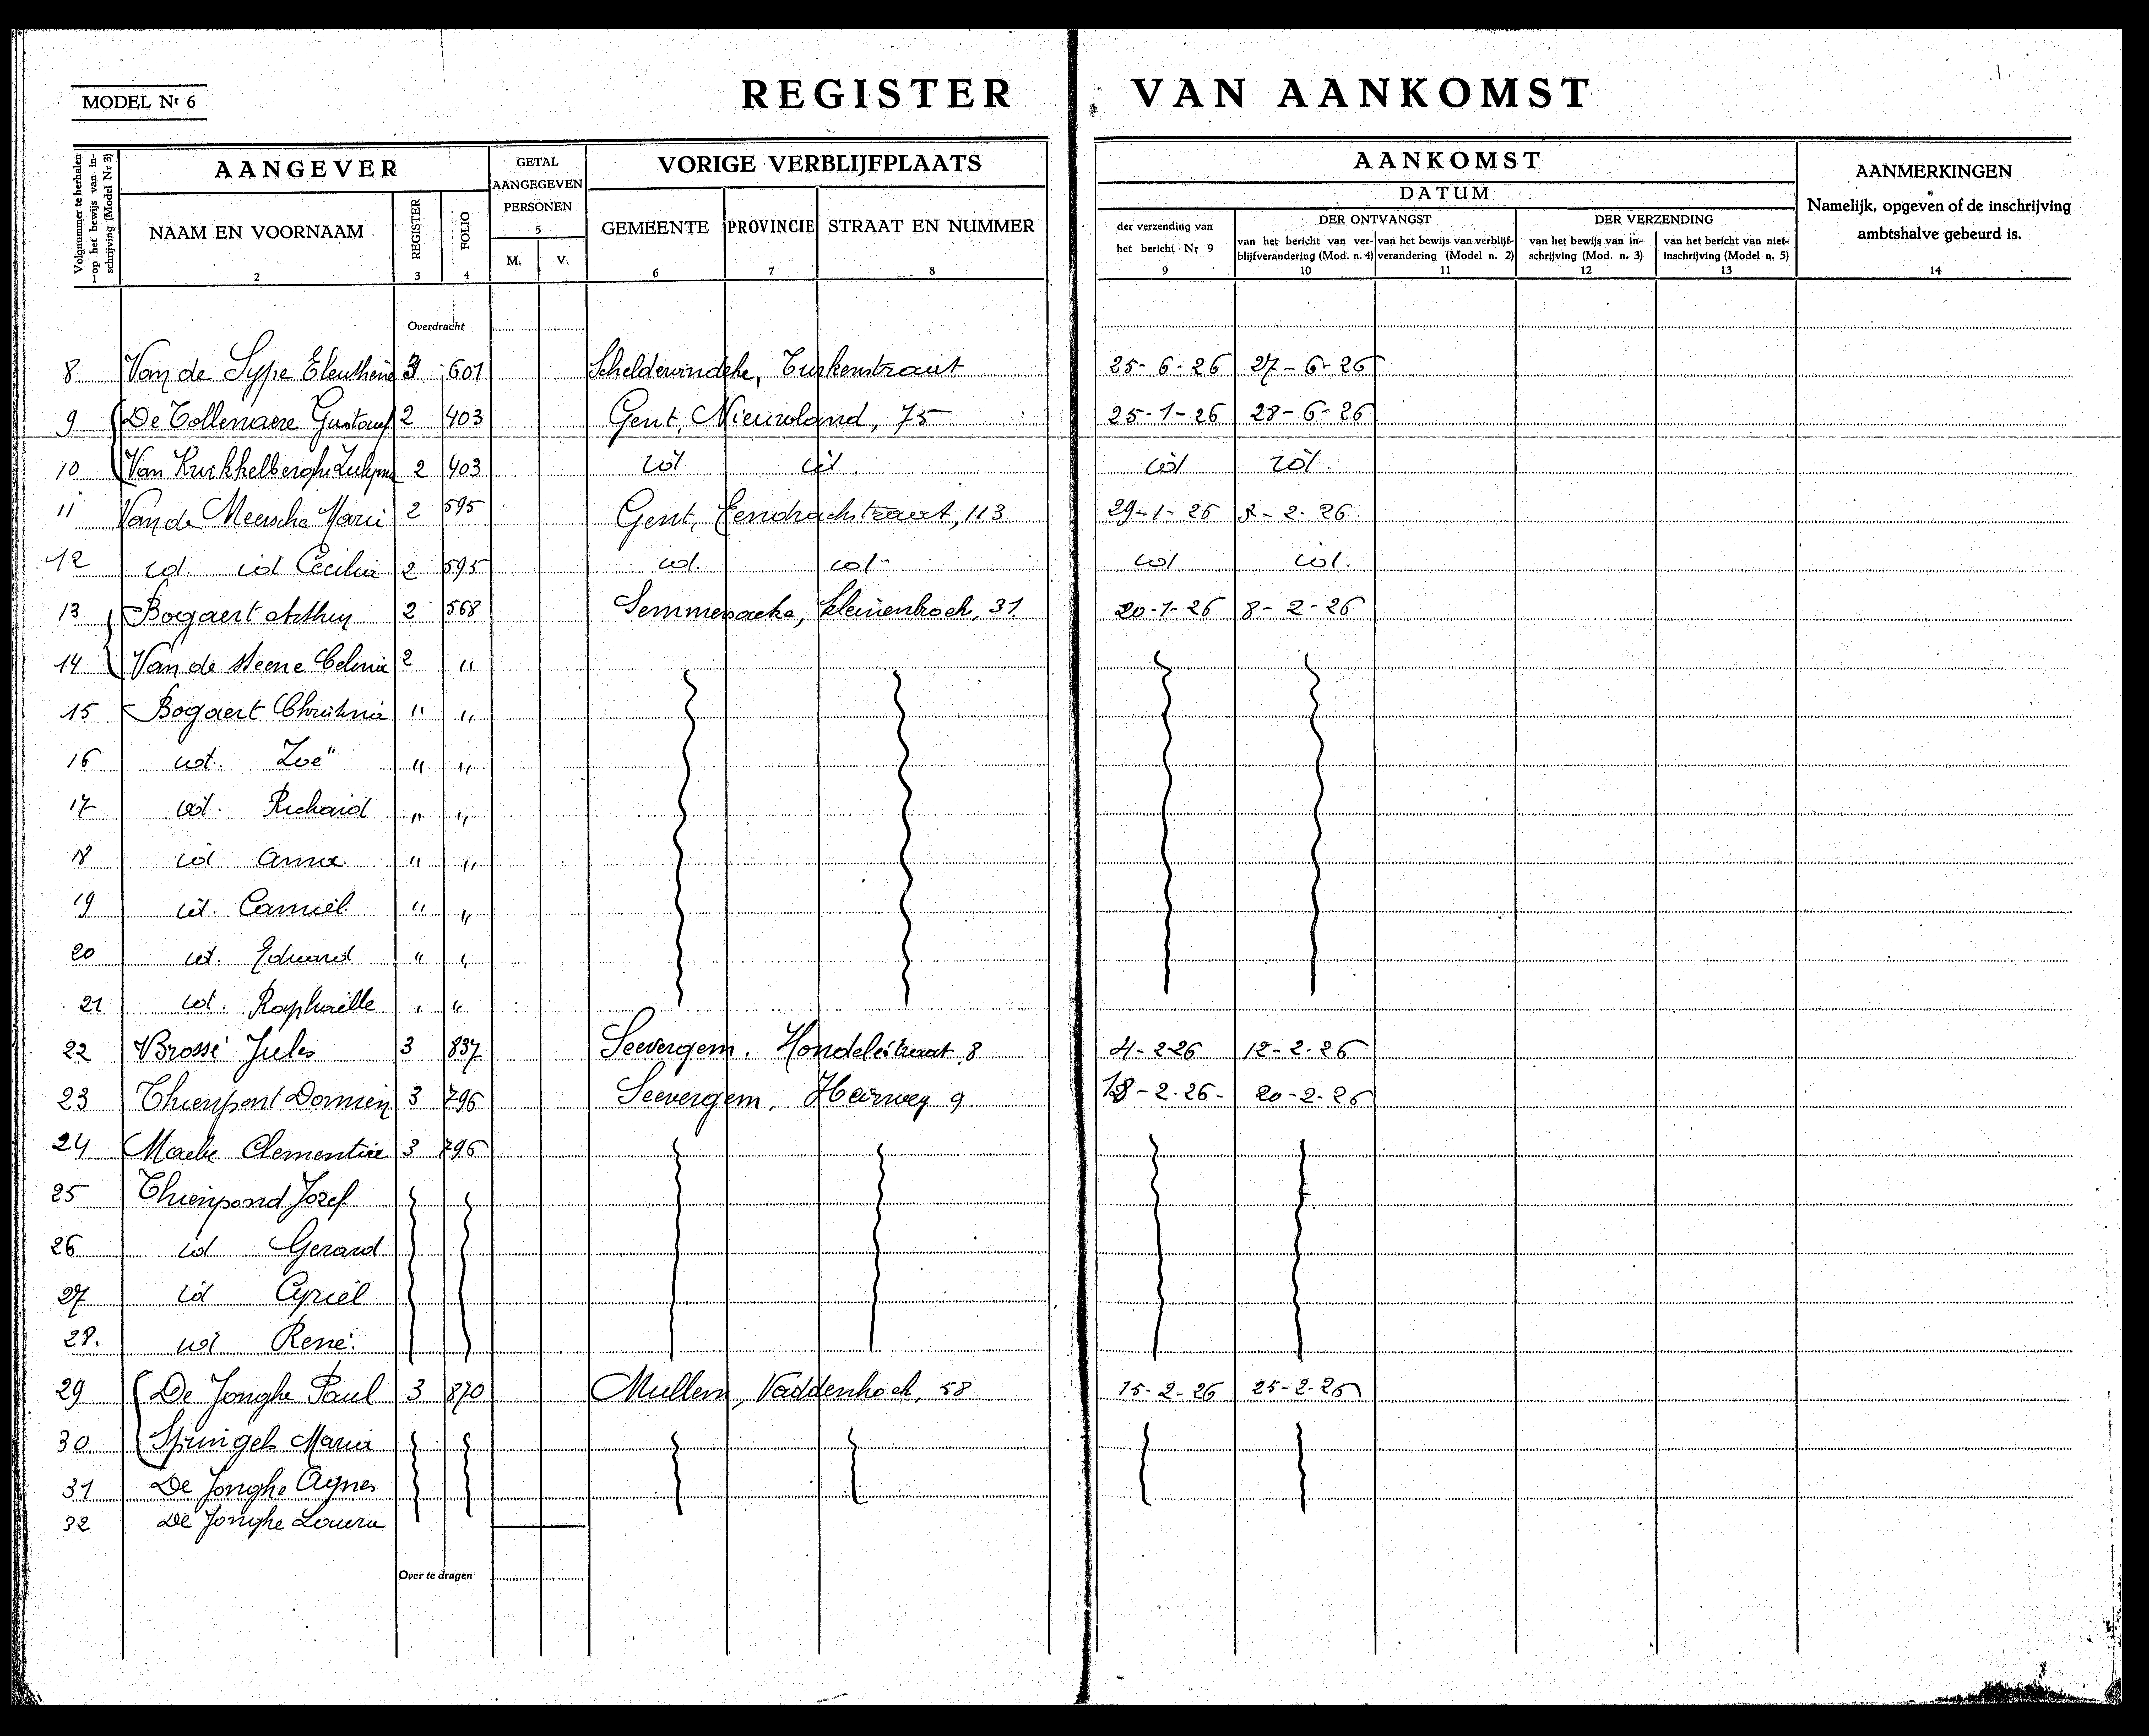 MODEL Nr 6
REGISTER VAN AANKOMST
Volgnummer te herhalen op het bewijs van inschrijving (Model Nr 3)
AANGEVER
NAAM EN VOORNAAM
2
REGISTER
3
FOLIO
4
GETAL
AANGEGEVEN
PERSONEN
5
M. V.
VORIGE VERBLIJFPLAATS
GEMEENTE PROVINCIE STRAAT EN NUMMER
6 7 8
AANKOMST
DATUM
der verzending van
het bericht Nr 9
9
DER ONTVANGST
van het bericht van ver-
blijfverandering (Mod. n. 4)
10
van het bewijs van verblijf-
verandering (Model n. 2)
11
DER VERZENDING
van het bewijs van in-
schrijving (Mod. n. 3)
12
van het bericht van niet-
inschrijving (Model n. 5)
13
AANMERKINGEN
Namelijk, opgeven of de inschrijving
ambtshalve gebeurd is.
14
Overdracht
8 Van de Sype 3 601 Scheldewindeke, Turkenstraat 25-6-26 27-6-26
9 De Tollenaere Gustaaf 2 403 Gent, Nieuwland, 75 25-1-26 28-6-26
10 Van 2 403 id id. id id.
11 Van de Meersche Marie 2 595 Gent, Eendrachtstraat, 113 29-1-26 2-2-26.
12 id. id Cecilia 2 595 id. id. id id.
13 Bogaert Arthur 2 568 Semmersacke, kleinenhoek, 31 20-1-26 8-2-26
14 Van de Steene Celina 2 "
15 Bogaert Christina " "
16 id. Zoë " "
17 id. Richard " "
18 id Anna " "
19 id. Camiel " "
20 id. Eduard " "
21 id. Raphaëlle " "
22 Brosse Jules 3 837 Seevergem. Hondelestraat 8 4-2-26 12-2-26
23 Thienpont Domien 3 796 Seevergem. Heirweg 9. 18-2-26- 20-2-26
24 Maebe Clementine 3 796
25 Thienpond Jozef
26 id Gerard
27 id Cyriel
28. id René.
29 De Jonghe Paul 3 870 Mullem, Vaddenhoek, 58 15-2-26 25-2-26
30 Springels Maria
31 De Jonghe Agnes
32 De Jonghe Laura
Over te dragen